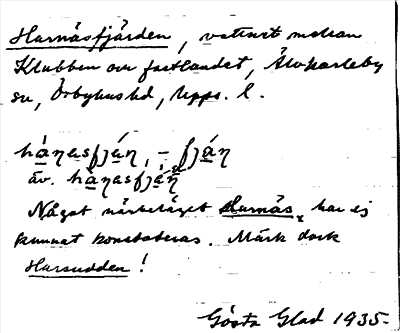 Harnäsfjärden, vattnet mellan
Klubben och fastlandet, Älvkarleby
sn, Örbyhus hd, Upps. l.
hànasfjáṇ, – fjáṇ
äv. hànasfjáṇ
Något närbeläget Harnäs, har ej
kunnat konstateras. Märk dock
Harsudden!
Gösta Glad 1935.